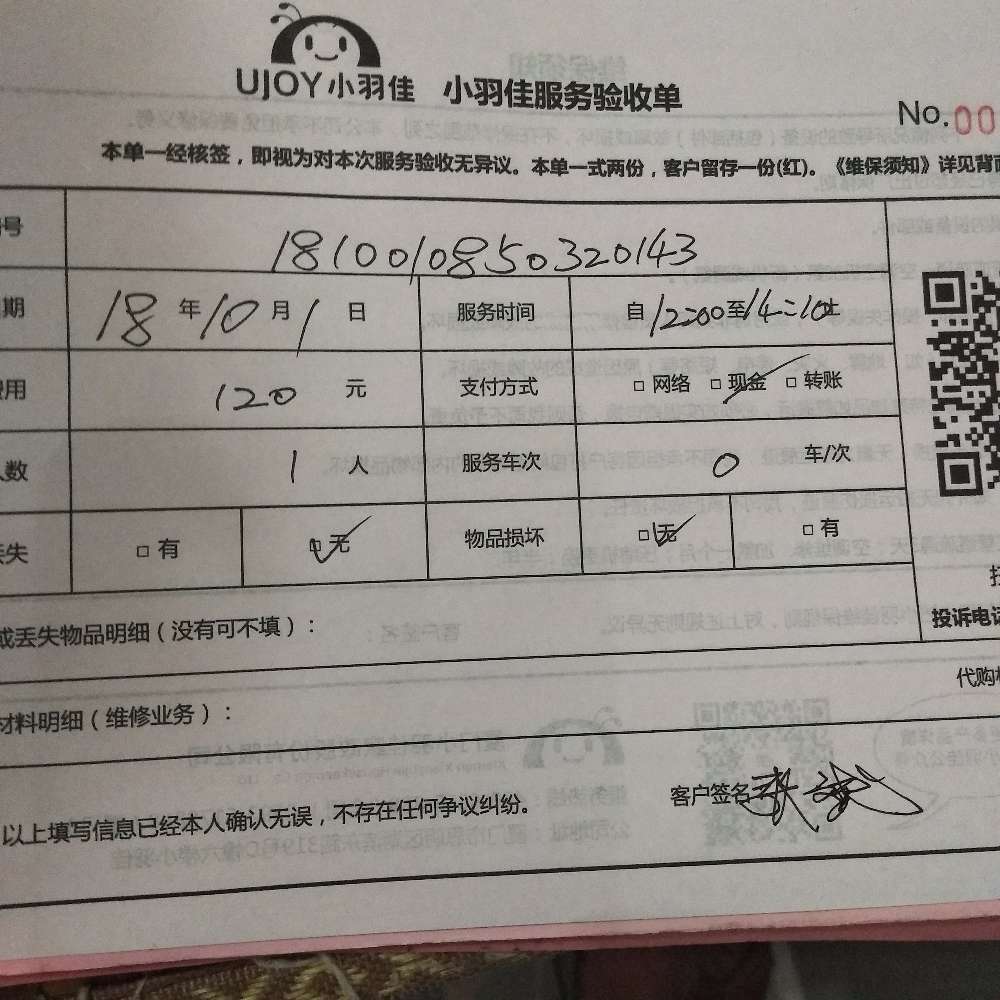 UJOY小羽佳 小羽佳服务验收单
No.00
本单一经核签，即视为对本次服务验收无异议。本单一式两份，客户留存一份(红)。《维保须知》详见背面
号 1810010850320143
期 18年10月1日 服务时间 自12:00至14:10止
费用 120元 支付方式 □网络 □现金 □转账
人数 1人 服务车次 0车/次
丢失 □有 □无 物品损坏 □无 □有
投诉电话
或丢失物品明细（没有可不填）：
代购材
材料明细（维修业务）：
以上填写信息已经本人确认无误，不存在任何争议纠纷。 客户签名